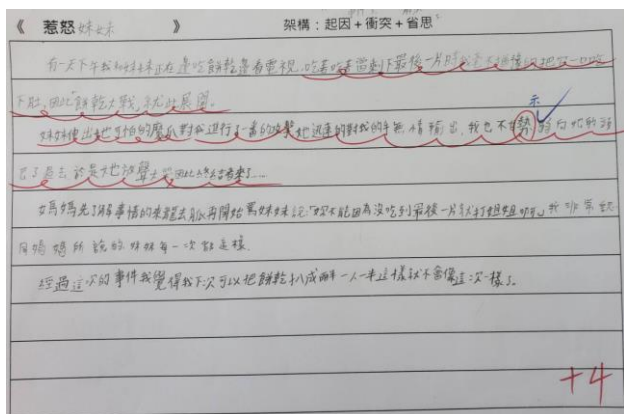 《惹怒妹妹》 架構:起因+衝突+省思
有一天下午我和妹妹正在邊吃餅乾邊看電視,吃著吃著當剩下最後一片時我把一口吃
下肚,因此"餅乾大戰"就此展開。
示
妹妹使出她可怕的魔爪對我進行了一番的攻擊她迅速的對我的手無情輸出,我也不甘勢弱的
了過去於是她放聲大哭因此終結者來了...
媽媽先了解事情的來龍去脈再開始罵妹妹說:「妳不能因為沒吃到最後一片就打姐姐啊」我非常認
同媽媽所說的妹妹每一次都這樣。
經過這次的事件我覺得我下次可以把餅乾扒成兩半一人一半這樣就不會像這次一樣了。
+4